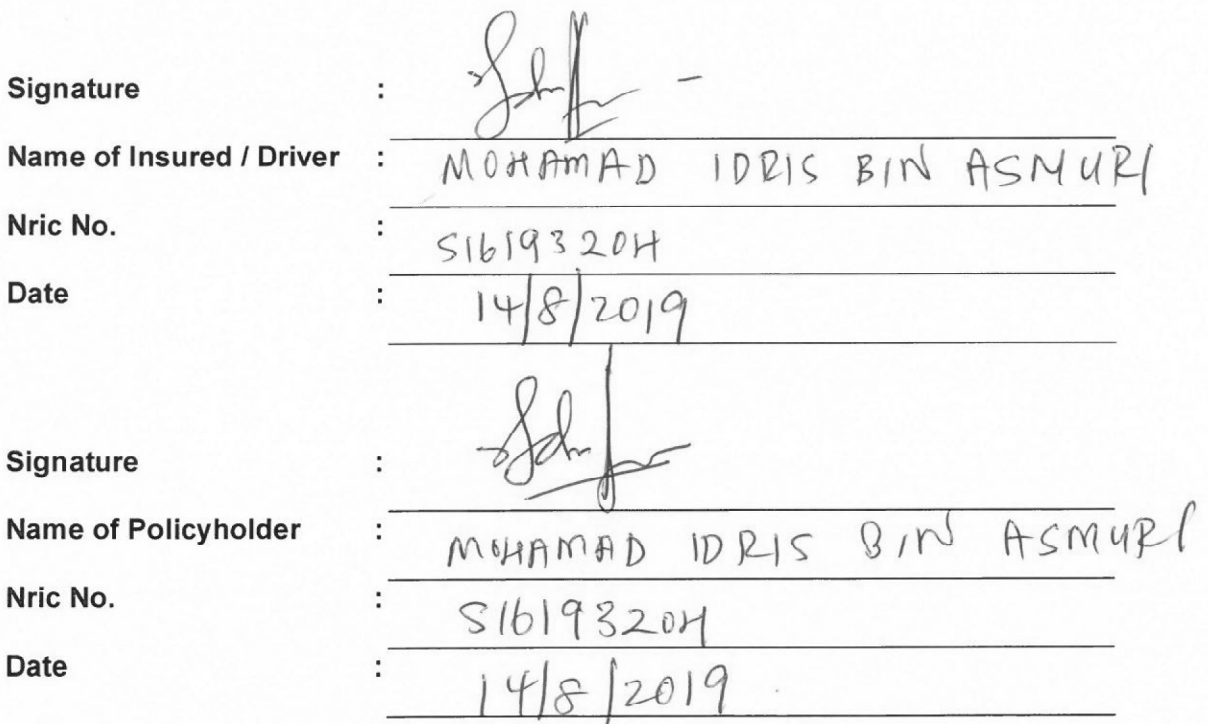 Signature :
Name of Insured / Driver : MOHAMAD IDRIS BIN ASMURI
Nric No. : S1619320H
Date : 14/8/2019
Signature :
Name of Policyholder : MOHAMAD IDRIS BIN ASMURI
Nric No. : S1619320H
Date : 14/8/2019